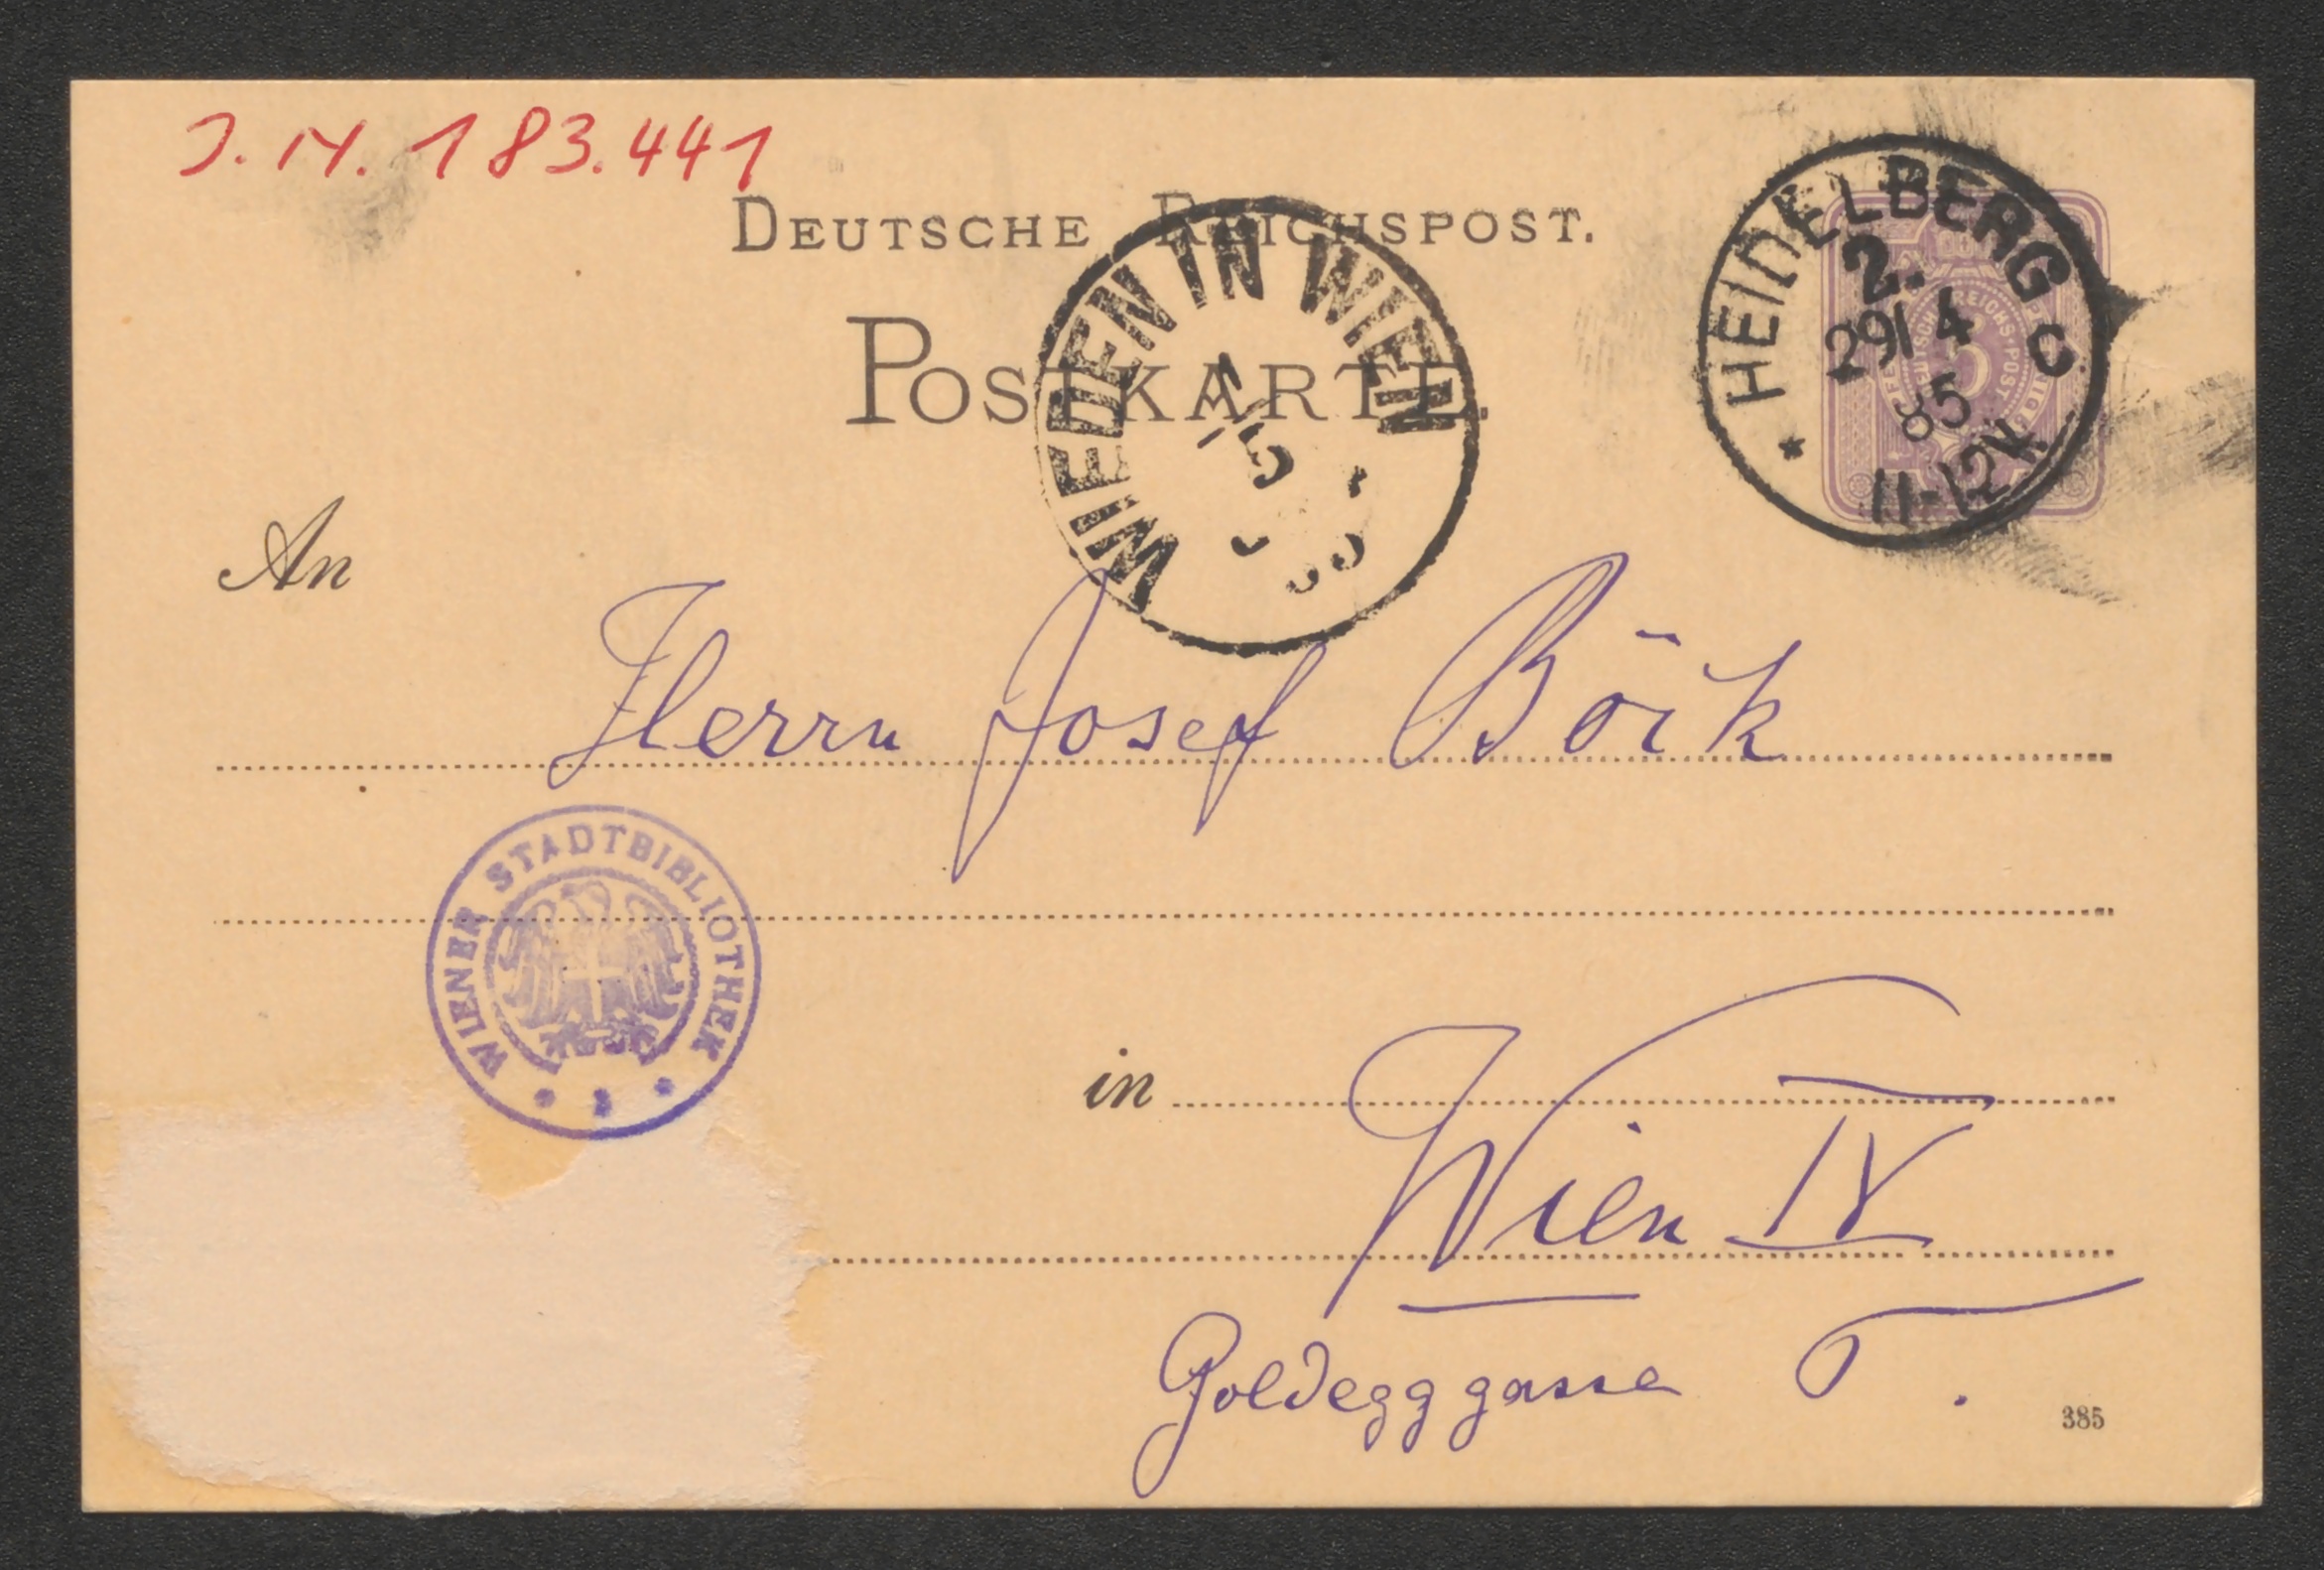 J. N. 183.441
DEUTSCHE REICHSPOST.
POSTKARTE.
WIEDEN IN WIEN
1
5
HEIDELBERG C.
2.
29 4
85
11-12V.
*
DEUTSCHE REICHS-POST
5
An
Herrn Josef Böck
WIENER STADTBIBLIOTHEK
in
Wien IV
Goldegggasse
385